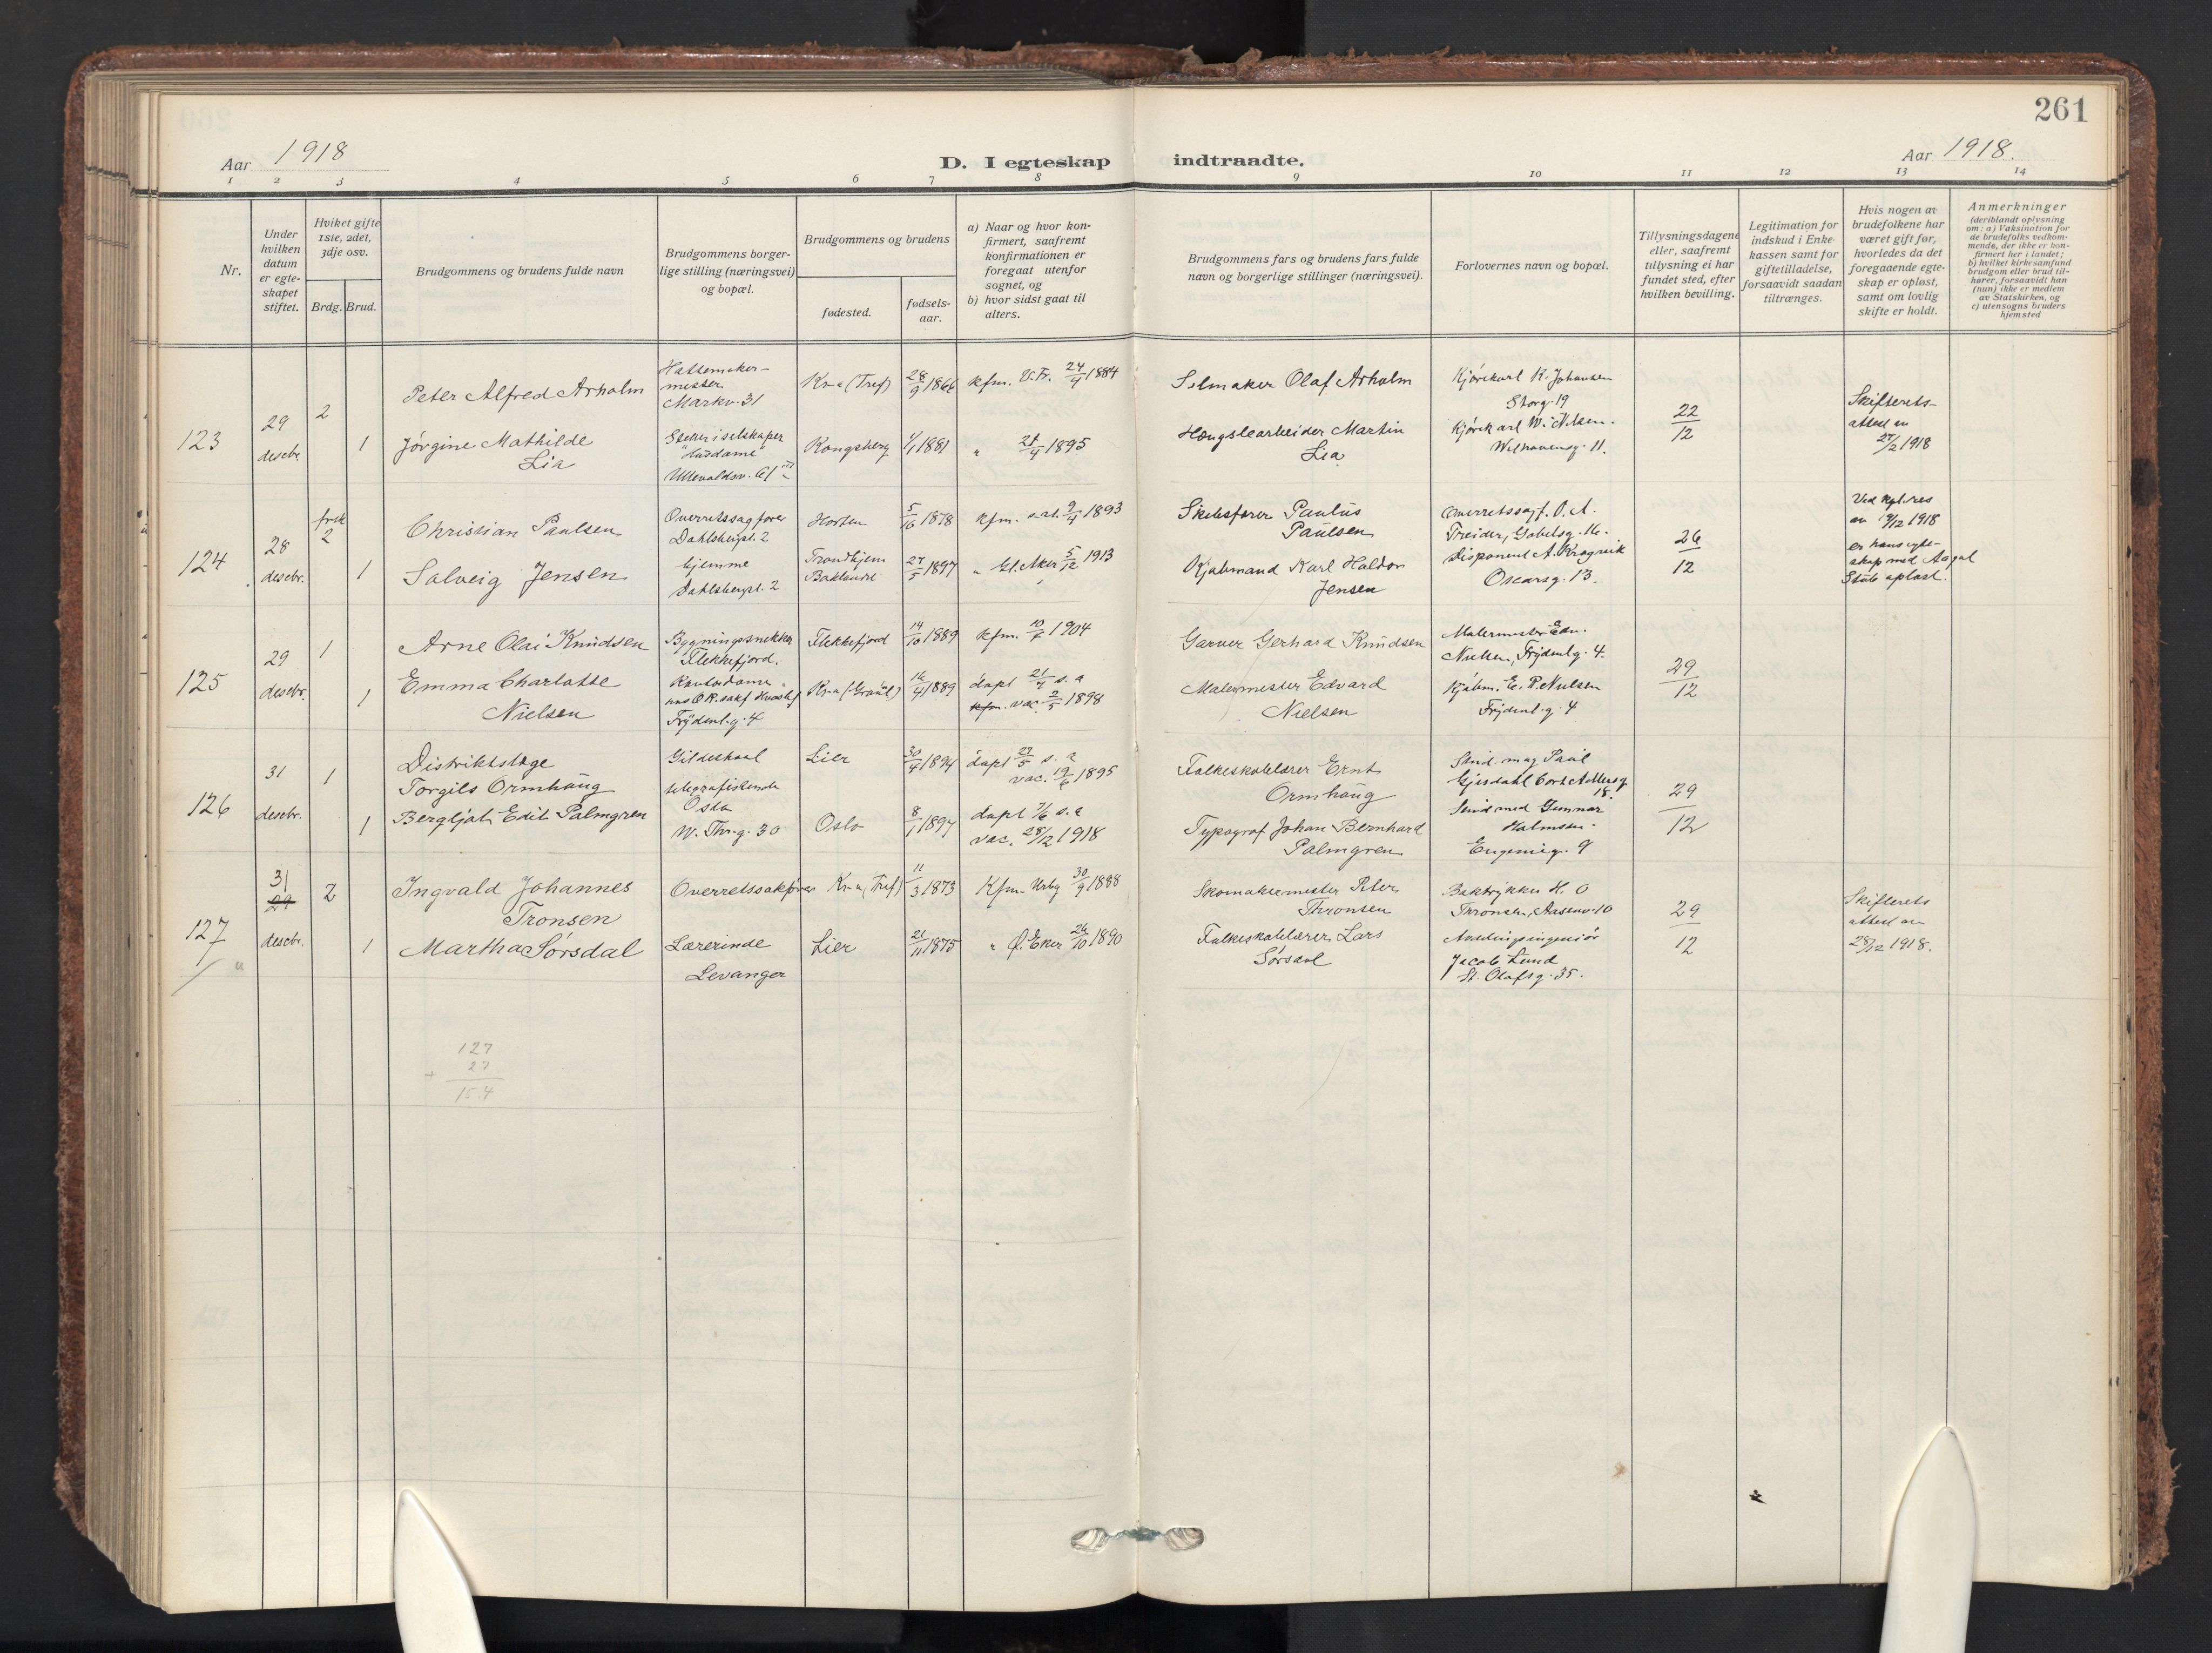 261
Aar 1918
D. I egteskap indtraadte.
Aar 1918.
1 2 3 4 5 6 7 8 9 10 11 12 13 14
Nr.
Under
hvilken
datum
er egte-
skapet
stiftet.
Hviket gifte
1ste, 2det,
3dje osv.
Brdg. Brud.
Brudgommens og brudens fulde navn
Brudgommens borger-
lige stilling (næringsvei)
og bopæl.
Brudgommens og brudens
fødested.
fødsels-
aar.
a) Naar og hvor kon-
firmert, saafremt
konfirmationen er
foregaat utenfor
sognet, og
b) hvor sidst gaat til
alters.
Brudgommens fars og brudens fars fulde
navn og borgerlige stillinger (næringsvei).
Forlovernes navn og bopæl.
Tillysningsdagene
eller, saafremt
tillysning ei har
fundet sted, efter
hvilken bevilling.
Legitimation for
indskud i Enke-
kassen samt for
giftetilladelse,
forsaavidt saadan
tiltrænges.
Hvis nogen av
brudefolkene har
været gift før,
hvorledes da det
foregaaende egte-
skap er opløst,
samt om lovlig
skifte er holdt.
Anmerkninger
(deriblandt oplysning
om: a) Vaksination for
de brudefolks vedkom-
mende, der ikke er kon-
firmert her i landet;
b) hvilket kirkesamfund
brudgom eller brud til-
hører, forsaavidt han
(hun) ikke er medlem
av Statskirken, og
c) utensogns bruders
hjemsted
123
29
desebr.
2
1
Peter Alfred Arholm
Jørgine Mathilde
Lia
Hattemaker-
mester
Markv. 31
Husdame
Ullevoldsv. 61 III
Kr-a (Tref) 28/9 1866
Kongsberg 4/1 1881
Kfm. V. Fr. 24/4 1884
" 21/4 1895
Selmaker Olaf Arholm
Hængslearbeider Martin
Lia
Kjørekarl K. Johansen
Storg. 19
Kjørekarl W. Nilsen.
Welhavensg. 11.
22/12
Skifterets-
attest av
27/2 1918
124
28
desebr.
frsk
2
1
Christian Paulsen
Solveig Jensen
Overretssagfører
Dahlsbergst. 2
hjemme
Dahlsbergst. 2
Horten 5/10 1878
Trondhjem
Baklandet 27/5 1897
Kfm. s.st. 9/4 1893
" Gl. Aker 5/12 1913
Skibsfører Paulus
Paulsen
Kjøbmand Karl Haldor
Jensen
Overretssagf. O. A.
Treider, Gabelsg. 16.
Disponent A. Kragvik
Oscarsg. 13.
26/12
Ved kgl. res
av 9/12 1918
er hans egte-
skap med Aagot
Stub opløst.
125
29
desebr.
1
1
Arne Olai Knudsen
Emma Charlotte
Nielsen
Bygningssnekker
Flekkefjord.
Kontordame
Frydenl. g. 4
Flekkefjord 14/10 1889
16/4 1889
Kfm. 10/7 1904
døpt 21/4 s. a
kfm. vac. 2/5 1898
Garver Gerhard Knudsen
Malermester Edvard
Nielsen
Malermester Edv.
Nielsen, Frydenl. g. 4.
Kjøbm. E. P. Nielsen
Frydenl. g. 4
29/12
126
31
desebr.
1
1
Distriktslæge
Torgils Ormhaug
Bergljot Edit Palmgren
Gildeskaal
telegrafistinde
Oslo
W. Thr. g. 30
Lier 30/4 1894
Oslo 8/1 1897
døpt 27/5 s. a
vac. 19/6 1895
døpt 7/6 s. a
vac. 28/12 1918
Folkeskolelærer Ernt
Ormhaug
Typograf Johan Bernhard
Palmgren
Stud. mag Paul
Gjesdahl Cort Adlersg
18.
Stud med Gunnar
Holmsen.
Eugenieg. 9
29/12
127
31
29
desebr.
2
1
Ingvald Johannes
Tronsen
Martha Sørsdal
Overretssakfører
Lærerinde
Levanger
Kr-a (Tref) 11/3 1873
Lier 21/11 1875
Kfm. Urby 30/9 1888
" Ø. Eker 26/10 1890
Skomakermester Peter
Thronsen
Folkeskolelærer Lars
Sørsdal
Boktrykker H. O
Thronsen, Aasenv. 10
Avdelingsingeniør
Jacob Lund
St. Olafsg. 35.
29/12
Skifterets
attest av
28/12 1918.
127
+ 27
154